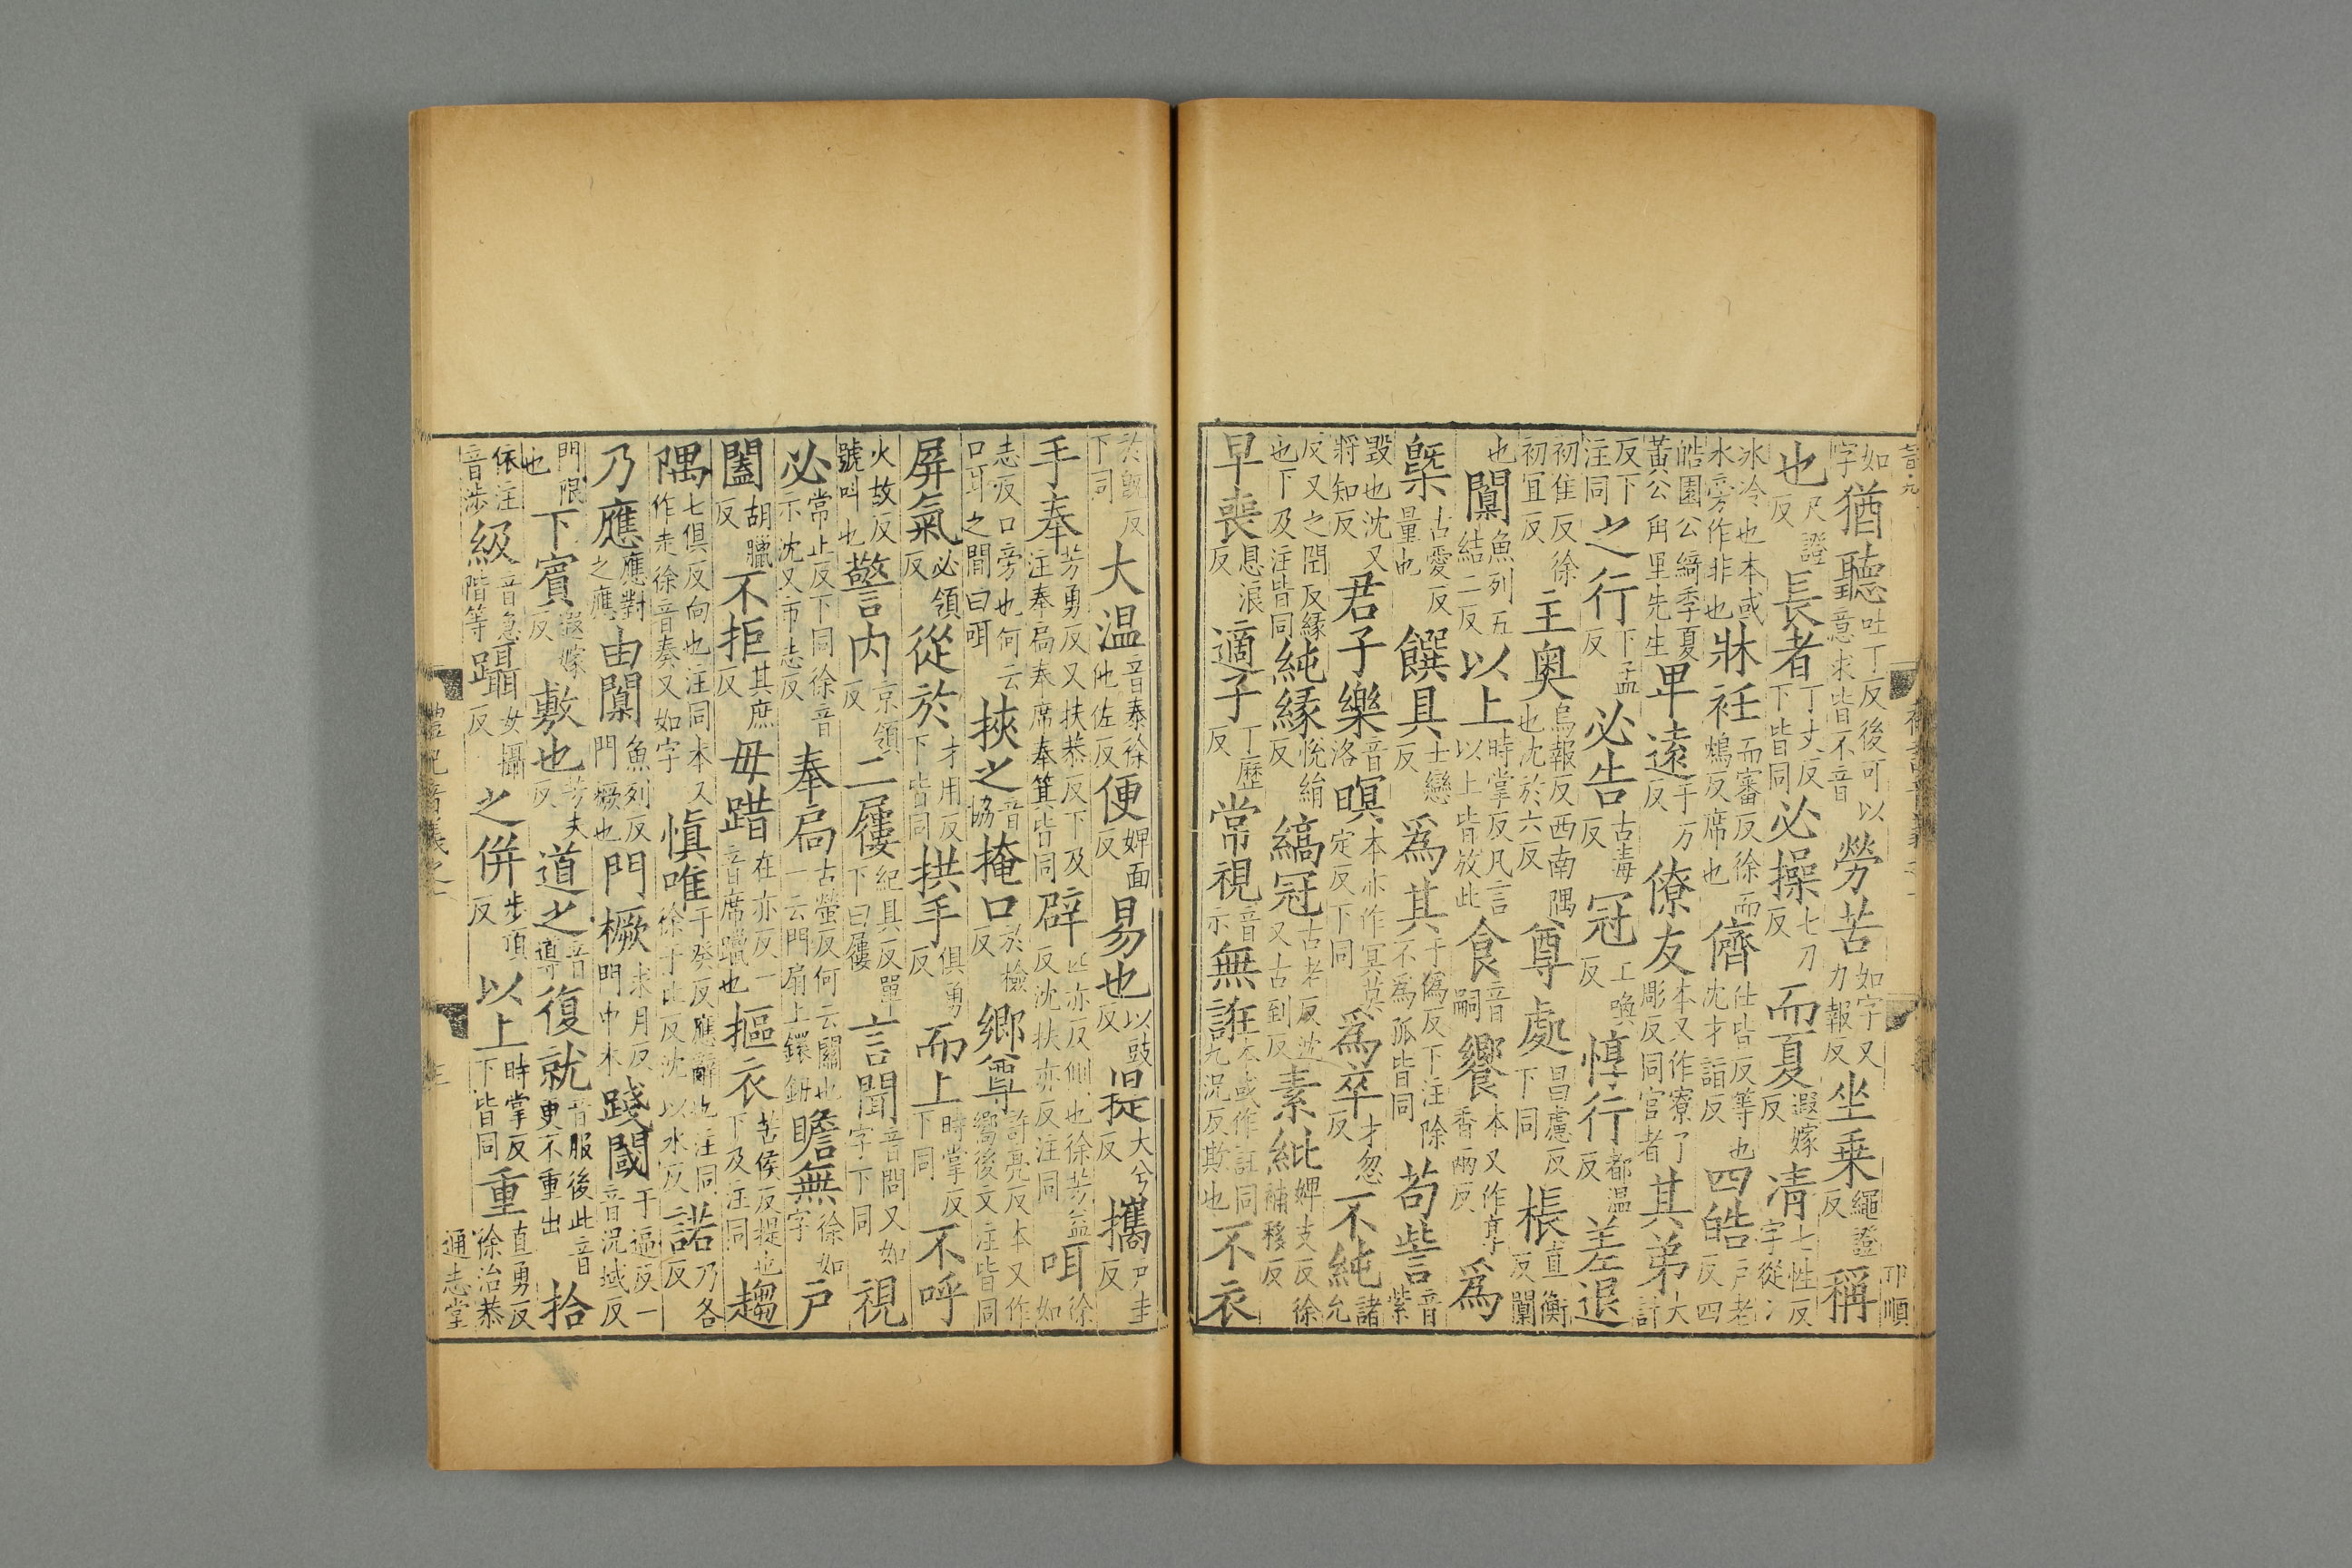 如字猶聽吐丁反後可以意求皆不音勞苦如字又力報反坐乗繩證反稱
也尺證反長者丁丈反下皆同必操七刀反而夏遐嫁反凊七性反字從冫
冰冷也本或水旁作非也牀衽而審反徐而鴆反席也儕仕皆反等也沈才詣反四皓戸老反四
皓園公綺季夏黃公甪里先生卑遠于万反僚友本又作寮了彫反同官者其弟大計
反下注同之行下孟反必告古毒反冠工喚反惇行都温反差退
初隹反徐初宜反主奧烏報反西南隅也沈於六反尊處昌慮反下同棖直衡反闑
也闑魚列五結二反以上時掌反凡言以上皆放此食音嗣饗本又作享香兩反爲
槩古愛反量也饌具士戀反爲其于偽反下注除不爲孤皆同苟訾音紫
毀也沈又將知反君子樂音洛暝本亦作冥莫定反下同爲卒才忽反不純諸允
反又之閏反緣也下及注皆同純緣恱絹反縞冠古老反沈又古到反素紕婢支反徐補移反
早喪息浪反適子丁歷反常視音示無誑本或作誆同九況反欺也不衣
於旣反下同大温音泰徐他佐反便婢面反易也以豉反提大兮反攜戸圭反
手奉芳勇反又扶恭反下及注奉扃奉席奉箕皆同辟匹亦反側也徐芳益反沈扶亦反注同咡徐如
志反口旁也何云口耳之間曰咡挾之音協掩口於檢反鄉尊許亮反本又作嚮後文注皆同
屏氣必領反從於才用反下皆同拱手俱勇反而上時掌反下同不呼
火故反號叫也警内京領反二屨紀具反單下曰屨言聞音問又如字下同視
必常止反下同徐音示沈又市志反奉扃古螢反何云關也一云門扇上鐶鈕瞻無徐如字戸
闔胡臘反不拒其庶反毋踖在亦反一音席躐也摳衣苦侯反提也下及注同趨
隅七俱反向也注同本又作走徐音奏又如字愼唯于癸反應辭也注同徐于比反沈以水反諾乃各反
乃應應對之應由闑魚列反門橛也門橛求月反門中木踐閾于逼反一音況域反
門限也下賓遐嫁反敷也芳夫反道之音導復就音服後此音更不重出拾
依注音涉級音急階等躡女攝反之併步頂反以上時掌反下皆同重直勇反徐治恭
禮記音義之一
通志堂